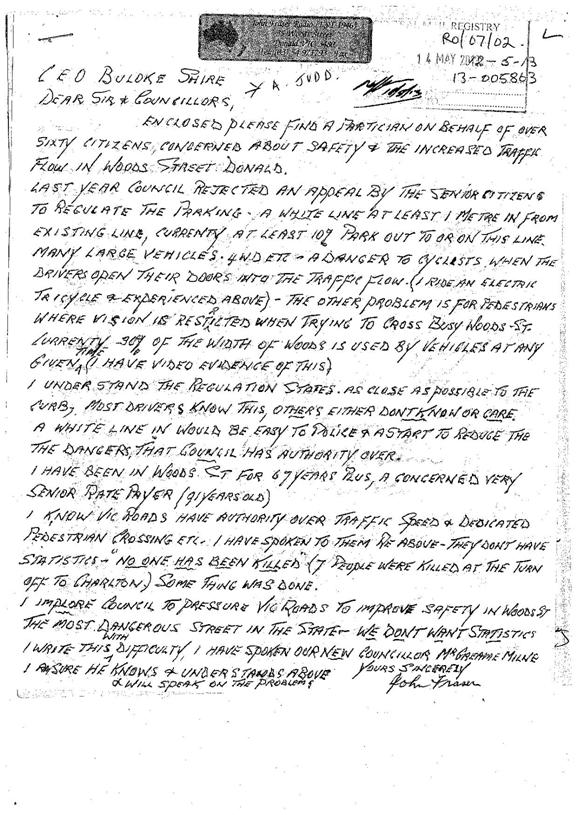 REGISTRY
RO/07/02.
14 MAY 2012-5-13
13-005863
CEO BULOKE SHIRE
A. JUDD.
DEAR SIR & COUNCILLORS,
ENCLOSED PLEASE FIND A PARTICIAN ON BEHALF OF OVER
SIXTY CITIZENS, CONCERNED ABOUT SAFETY & THE INCREASED TRAFFIC
FLOW IN WOODS STREET DONALD.
LAST YEAR COUNCIL REJECTED AN APPEAL BY THE SENIOR CITIZENS
TO REGULATE THE PARKING - A WHITE LINE AT LEAST 1 METRE IN FROM
EXISTING LINE, CURRENTY AT LEAST 10% PARK OUT TO OR ON THIS LINE,
MANY LARGE VEHICLES. 4WD ETC - A DANGER TO CYCLISTS, WHEN THE
DRIVERS OPEN THEIR DOORS INTO THE TRAFFIC FLOW. (I RIDE AN ELECTRIC
TRICYCLE & EXPERIENCED ABOVE) - THE OTHER PROBLEM IS FOR PEDESTRIANS
WHERE VISION IS WHEN TRYING TO CROSS BUSY WOODS-ST.
CURRENTY 30% OF THE WIDTH OF WOODS IS USED BY VEHICLES AT ANY
GIVEN TIME (I HAVE VIDEO EVIDENCE OF THIS)
I UNDERSTAND THE REGULATION STATES. AS CLOSE AS POSSIBLE TO THE
CURB, MOST DRIVERS KNOW THIS, OTHERS EITHER DONT KNOW OR CARE,
A WHITE LINE IN WOULD BE EASY TO POLICE & A START TO REDUCE THE
THE DANGERS, THAT COUNCIL HAS AUTHORITY OVER.
I HAVE BEEN IN WOODS. ST FOR 67 YEARS PLUS, A CONCERNED VERY
SENIOR RATE PAYER (91 YEARS OLD)
I KNOW VIC ROADS HAVE AUTHORITY OVER TRAFFIC SPEED & DEDICATED
PEDESTRIAN CROSSING ETC. I HAVE SPOKEN TO THEM RE ABOVE - THEY DONT HAVE
STATISTICS - "NO ONE HAS BEEN KILLED" (7 PEOPLE WERE KILLED AT THE TURN
OFF TO CHARLTON,) SOME THING WAS DONE.
I IMPLORE COUNCIL TO PRESSURE VIC ROADS TO IMPROVE SAFETY IN WOODS ST
THE MOST DANGEROUS STREET IN THE STATE - WE DONT WANT STATISTICS
I WRITE THIS WITH DIFFICULTY, I HAVE SPOKEN OUR NEW COUNCILLOR MR GREAME MILNE
I AM SURE HE KNOWS & UNDERSTANDS ABOVE
& WILL SPEAK ON THE PROBLEMS
YOURS SINCERELY
John Fraser